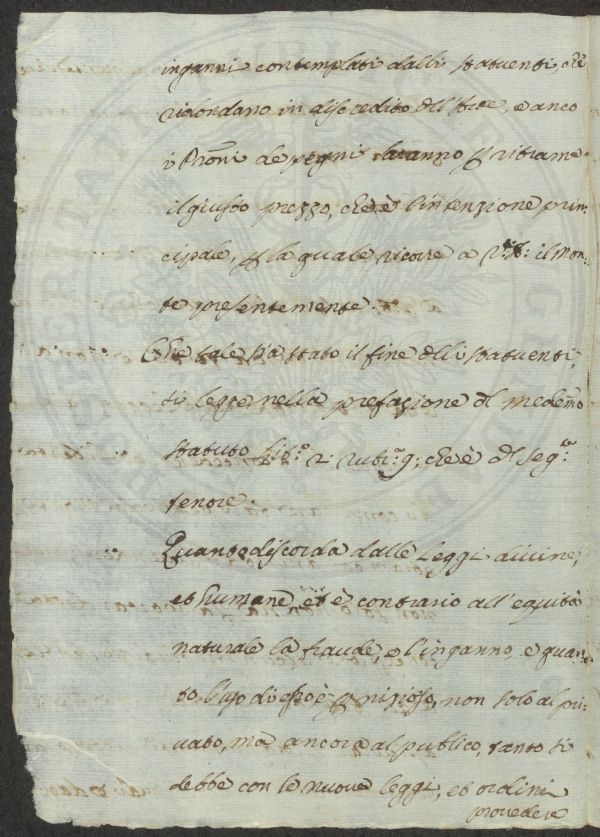 inganni contemplati dalli statuenti, che
ridondano in discredito dell'Arte, e anco
i Pñoni de pegni saranno p ritrarne
il giusto prezzo, che è l'intenzione prin=
cipale, p la quale ricorre a V: il mon=
te presentemente.
Che tale sia stato il fine delli statuenti,
si legge nella prefazione del medemo
statuto lib.º 2: rub.ª 9; che è del seg.te
tenore.
Quanto discorda dalle leggi divine,
et humane, et è contrario all'equità
naturale la fraude, e l'inganno, e quan=
to l'uso di esso è pnizioso, non solo al pri=
vato, ma ancora al publico, tanto si
debbe con le nuove leggi, et ordini
provedere